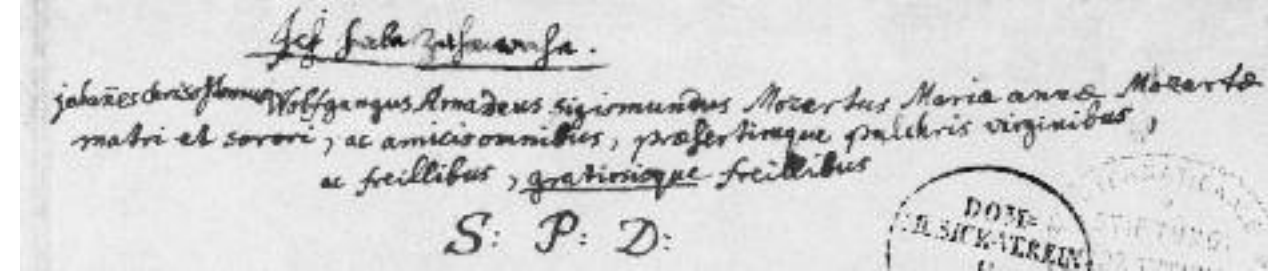 Ich habe zahnwehe.
johañes chrisostomus Wolfgangus Amadeus sigismundus Mozartus Mariæ annæ Mozartæ
matri et sorori, ac amicis omnibus, præsertimque pulchris virginibus,
ac freillibus, gratiosisque freillibus
S: P: D:
DOM=
MUSICK-VEREIN